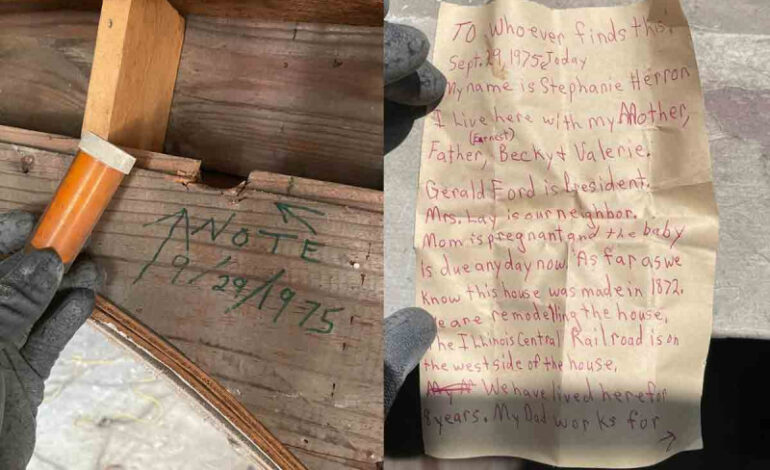 NOTE
9/29/1975
To Whoever finds this.
Sept. 29, 1975 Today
My name is Stephanie Herron
I Live here with my Mother,
(Earnest)
Father, Becky & Valerie.
Gerald Ford is President.
Mrs. Lay is our neighbor.
Mom is pregnant and the baby
is due any day now. As far as we
know this house was made in 1872.
We are remodelling the house.
The Illinois Central Railroad is on
the west side of the house.
We have lived here for
8 years. My Dad works for